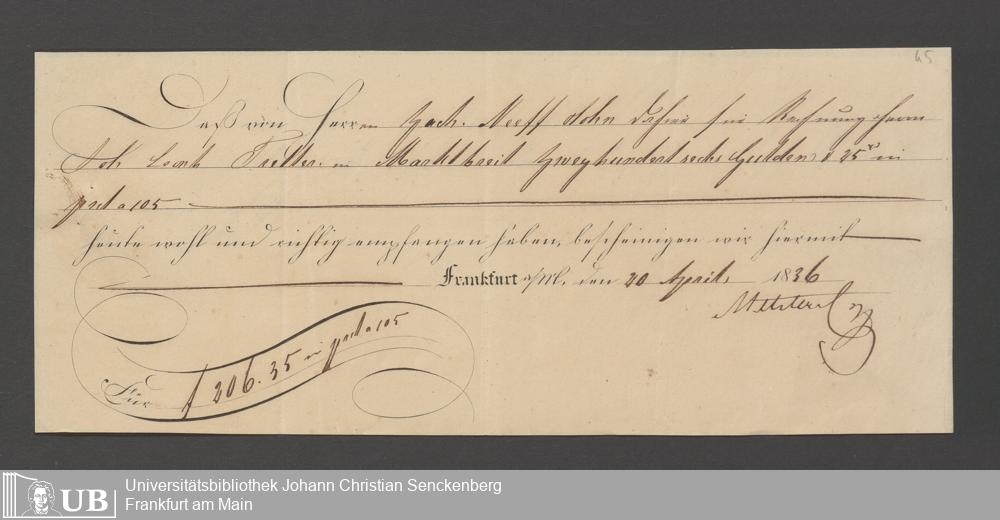 65
Daß von Herren Zach. Neeff Sohn dahier für Rechnung Herrn
Joh Leonh Tretter in Marktbreit Zweyhundert sechs Gulden & 35 xr in
prct a 105
heute wohl und richtig empfangen haben, bescheinigen wir hiermit
Frankfurt a/M, den 20 April 1836
Für f 206. 35 in prct a 105
UB
Universitätsbibliothek Johann Christian Senckenberg
Frankfurt am Main